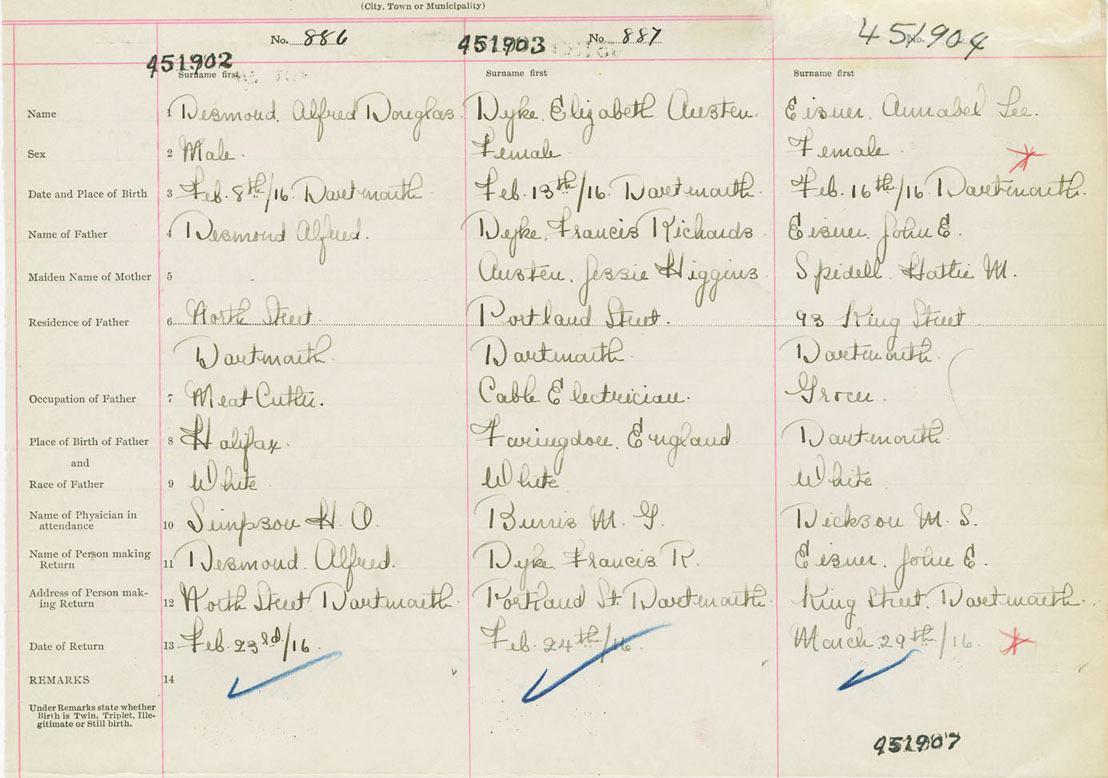 (City, Town or Municipality)
No. 886 No. 887 451904
451902 451903
Surname first Surname first Surname first
Name 1 Desmond, Alfred Douglas. Dyke, Elizabeth Austen. Eisner, Annabel Lee.
Sex 2 Male. Female. Female.
Date and Place of Birth 3 Feb. 8th/16. Dartmouth. Feb. 13th/16. Dartmouth. Feb. 16th/16. Dartmouth.
Name of Father 4 Desmond Alfred. Dyke, Francis Richards Eisner, John E.
Maiden Name of Mother 5 Austen, Jessie Higgins Spidell, Hattie M.
Residence of Father 6 North Street. Portland Street. 93 King Street
Dartmouth Dartmouth. Dartmouth.
Occupation of Father 7 Meat Cutter. Cable Electrician. Grocer.
Place of Birth of Father 8 Halifax. Faringdon, England Dartmouth.
and
Race of Father 9 White. White. White.
Name of Physician in
attendance 10 Simpson H. O. Burris M. G. Dickson M. S.
Name of Person making
Return 11 Desmond, Alfred. Dyke Francis R. Eisner, John E.
Address of Person mak-
ing Return 12 North Street, Dartmouth. Portland St. Dartmouth. King Street, Dartmouth.
Date of Return 13 Feb. 23rd/16. Feb. 24th/16. March 29th/16.
REMARKS 14
Under Remarks state whether
Birth is Twin, Triplet, Ille-
gitimate or Still birth.
451907